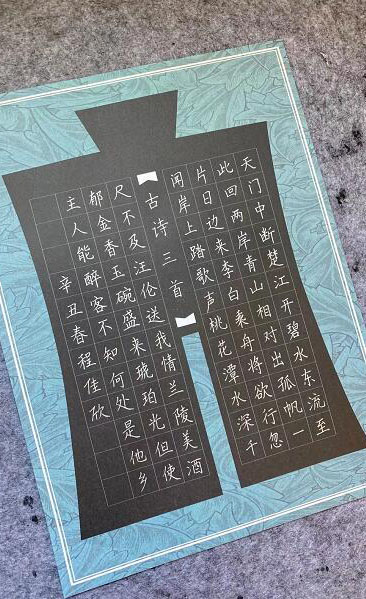 天门中断楚江开碧水东流至
此回两岸青山相对出孤帆一
片日边来李白乘舟将欲行忽
闻岸上踏歌声桃花潭水深千
古诗三首
尺不及汪伦送我情兰陵美酒
郁金香玉碗盛来琥珀光但使
主人能醉客不知何处是他乡
辛丑春程佳欣